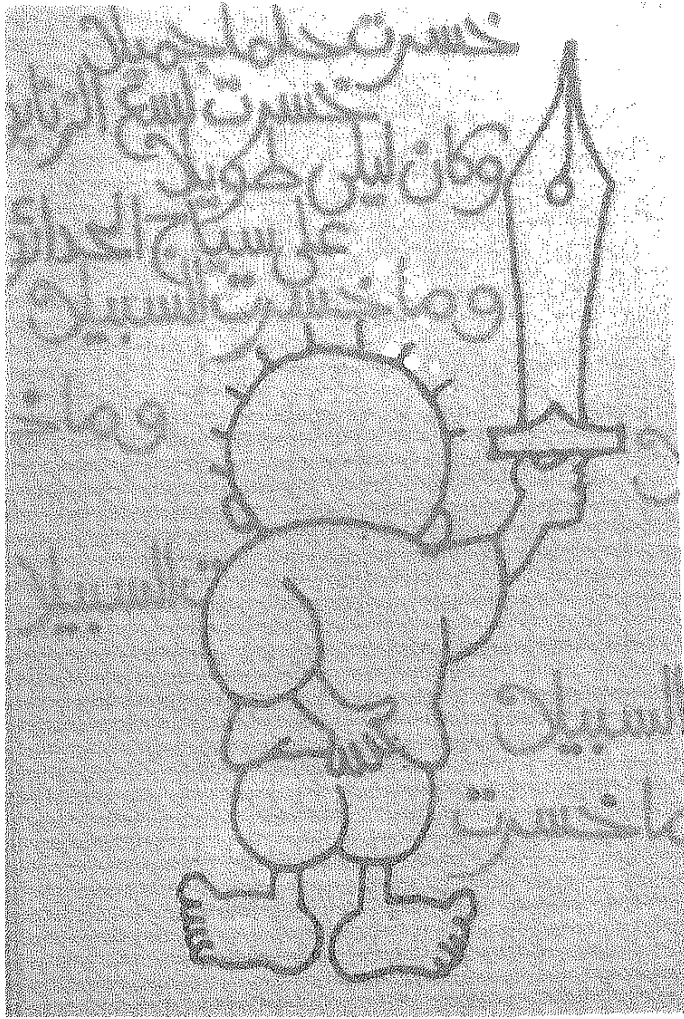 خسرت حلما جميلا
خسرت لسع
وكان ليلي طويلا
على سياج
وما خسرت السبيلا
وما
السبيلا
السبيلا
ما خسرت